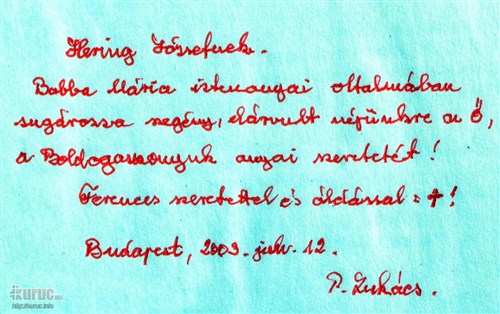 Hering Józsefnek.
Babba Mária istenanyai oltalmában
sugározza szegény, elárvult népünkre az Ő,
a Boldogasszonyuk anyai szeretetét!
Ferences szeretettel és áldással: +!
Budapest, 2009. júl. 12.
P. Lukács.
kuruc.info
http://kuruc.info